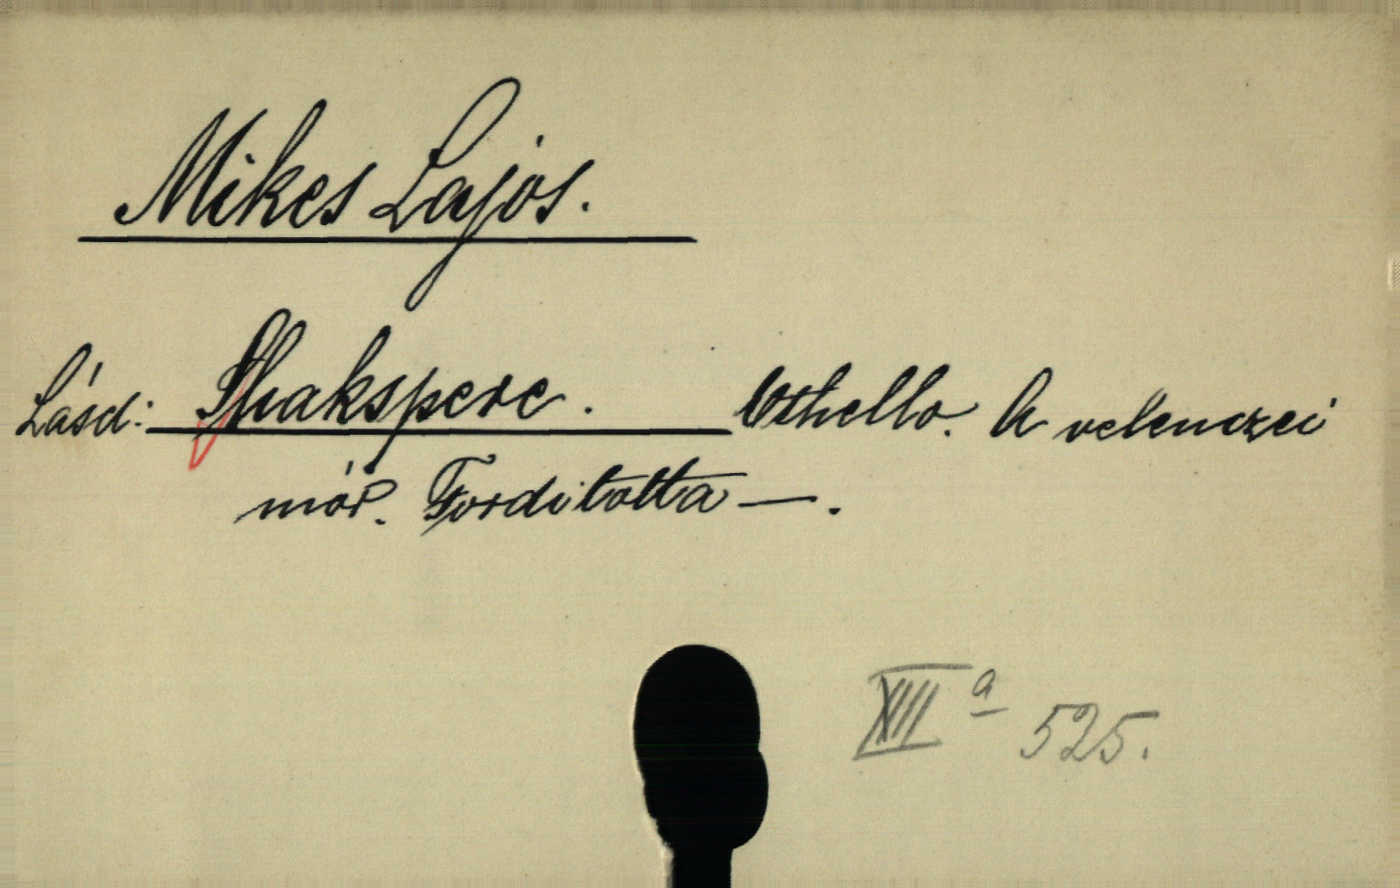 Mikes Lajos.
Lásd: Shakspere. Othello. A velenczei
mór. Fordította —.
XIII a 525.